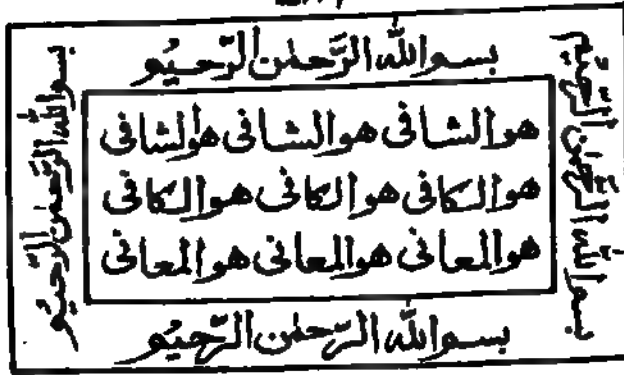 بسم الله الرَّحمٰن الرّحیم
بسم الله الرَّحمٰن الرّحیم
هو الشافی هو الشافی هو الشافی
هو الکافی هو الکافی هو الکافی
هو المعافی هو المعافی هو المعافی
بسم الله الرَّحمٰن الرّحیم
بسم الله الرّحمٰن الرّحیم